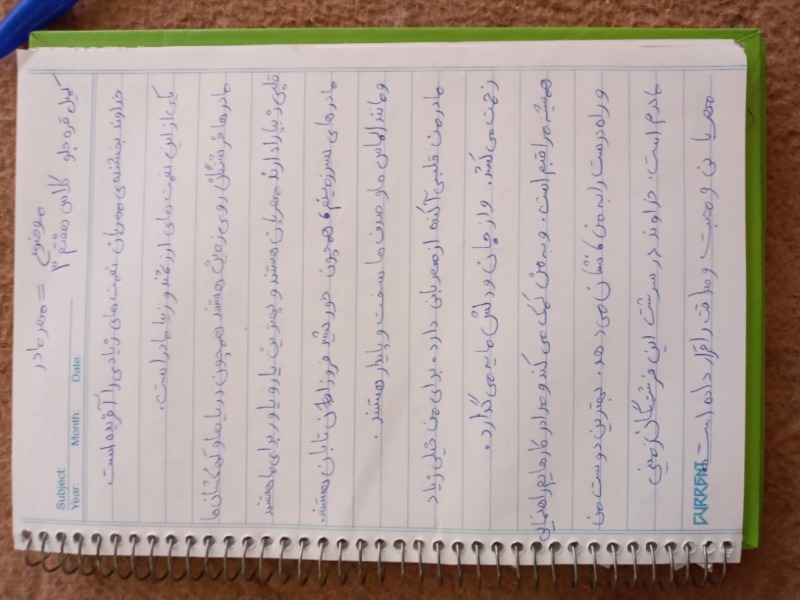 موضوع = مهر مادر
Subject:
Year: Month: Date:
قره جلو کلاس هشتم ۳
خداوند بخشنده‌ی مهربان نعمت‌های زیادی را آفریده است
یکی از این نعمت های ارزشمند و زیبا مادر است.
مادرها فرشتگان روی زمین هستند همچون دریاها و کهکشان‌ها
قلبی زیبا دارند مهربان هستند و بهترین یار و یاور برای ما هستند
مادرهای سرزمینم همچون خورشید فروزان تابان هستند.
و مانند الماس ها و صدف ها سخت و پایدار هستند.
مادر من قلبی آکنده از مهربانی دارد، برای من خیلی زیاد
زحمت می کشد. و از جان و دلش مایه می گذارد.
همیشه مراقبم است. و به من کمک می کند و مرا در کارهایم راهنمایی
و راه درست را به من نشان می دهد. بهترین دوست من
مادرم است. خداوند در سرشت این فرشتگان زمینی
مهربانی و محبت و صداقت را قرار داده است
CURRENT